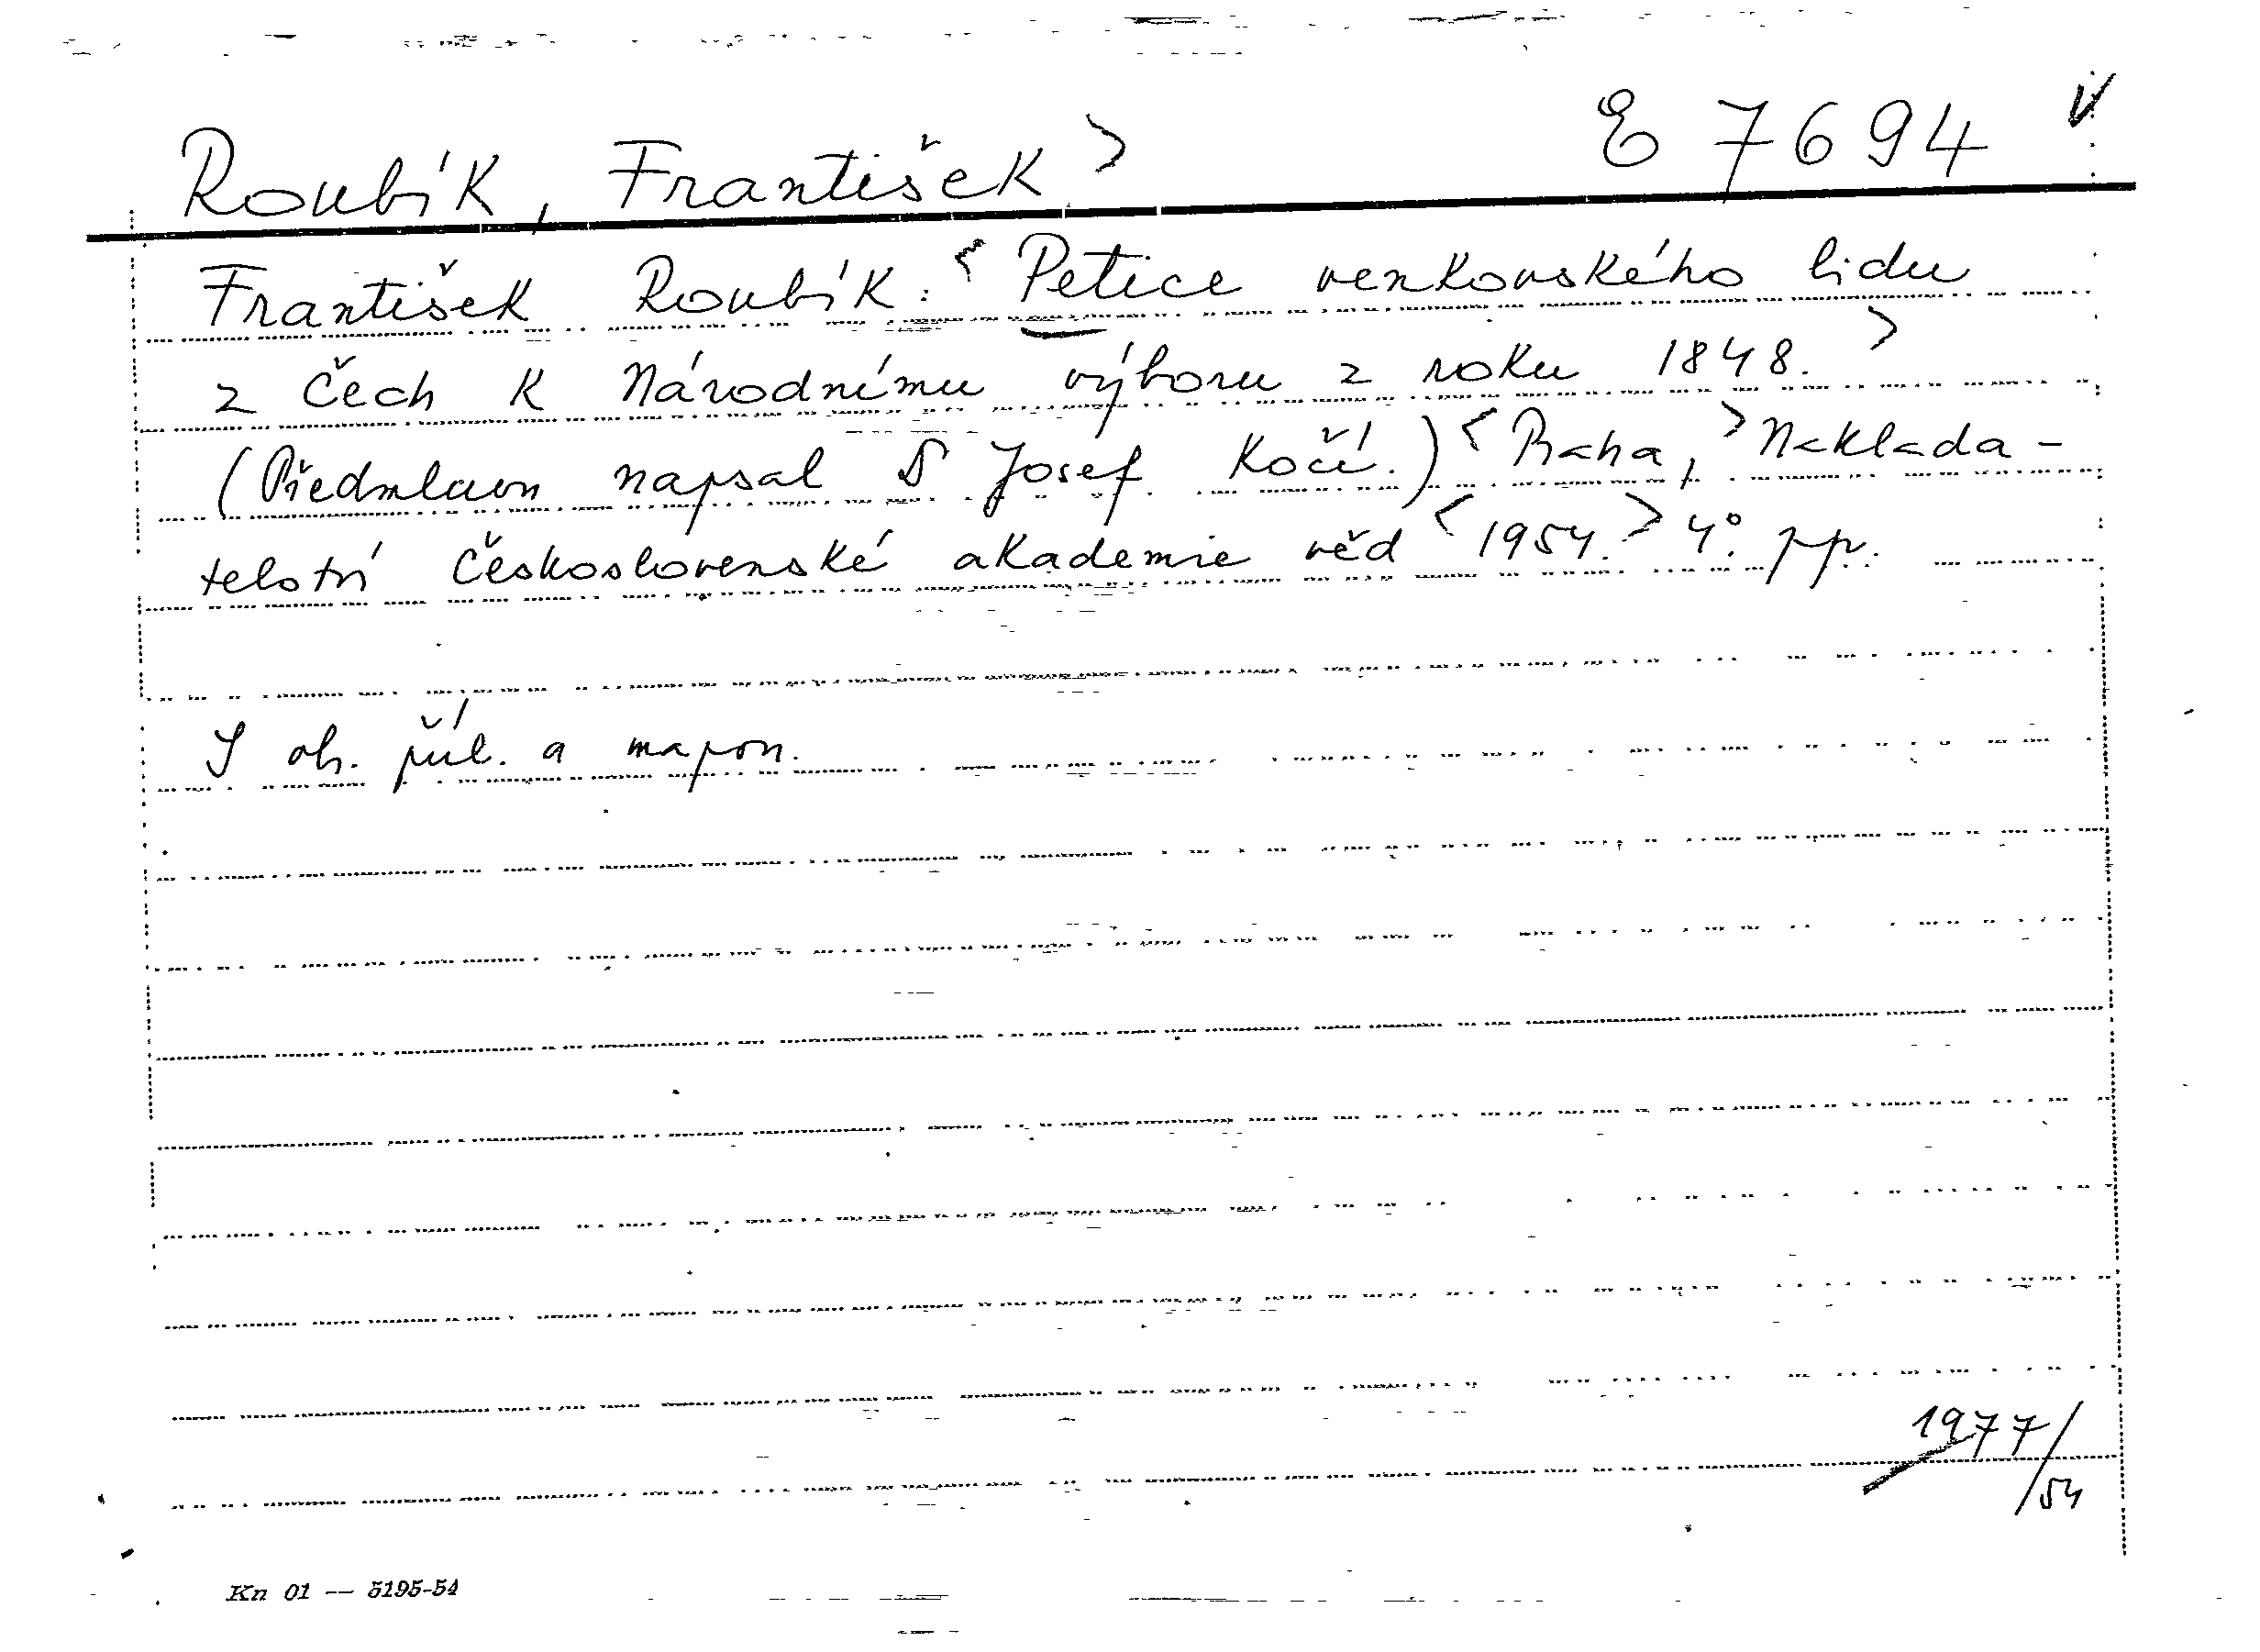 Roubík, František > E 7694 v
František Roubík: < Petice venkovského lidu
z Čech k Národnímu výboru z roku 1848. >
(Předmluvu napsal Josef Kočí.) < Praha, > Naklada-
telství Československé akademie věd < 1954. > 4°.
S obr. příl. a mapou.
1977/
/54
Kn 01 — 5195-54